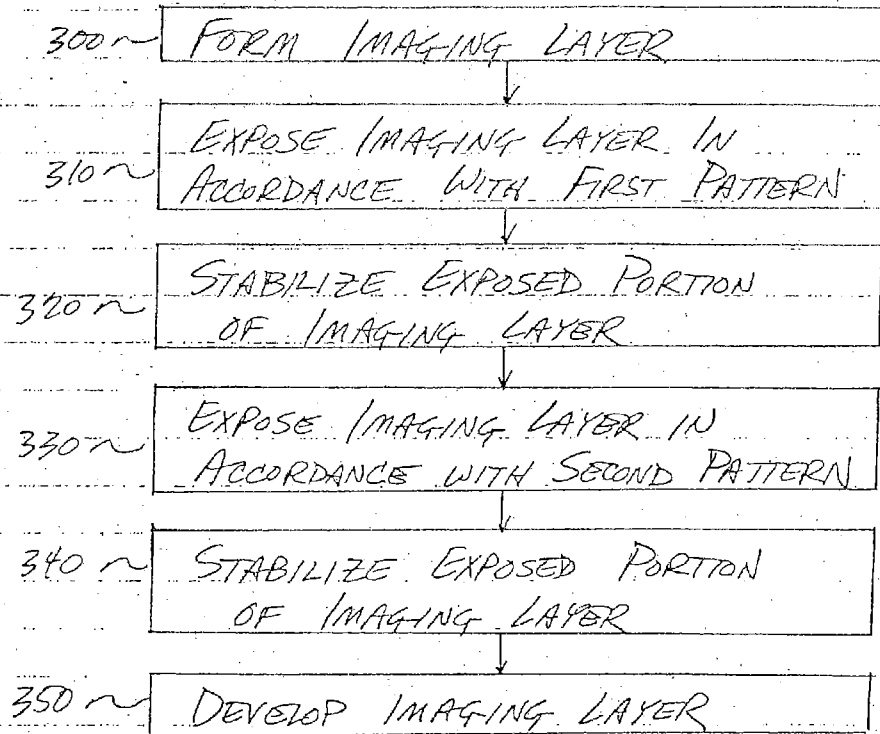 300~ FORM IMAGING LAYER
EXPOSE IMAGING LAYER IN
310~ ACCORDANCE WITH FIRST PATTERN
STABILIZE EXPOSED PORTION
320~ OF IMAGING LAYER
EXPOSE IMAGING LAYER IN
330~ ACCORDANCE WITH SECOND PATTERN
340~ STABILIZE EXPOSED PORTION
OF IMAGING LAYER
350~ DEVELOP IMAGING LAYER